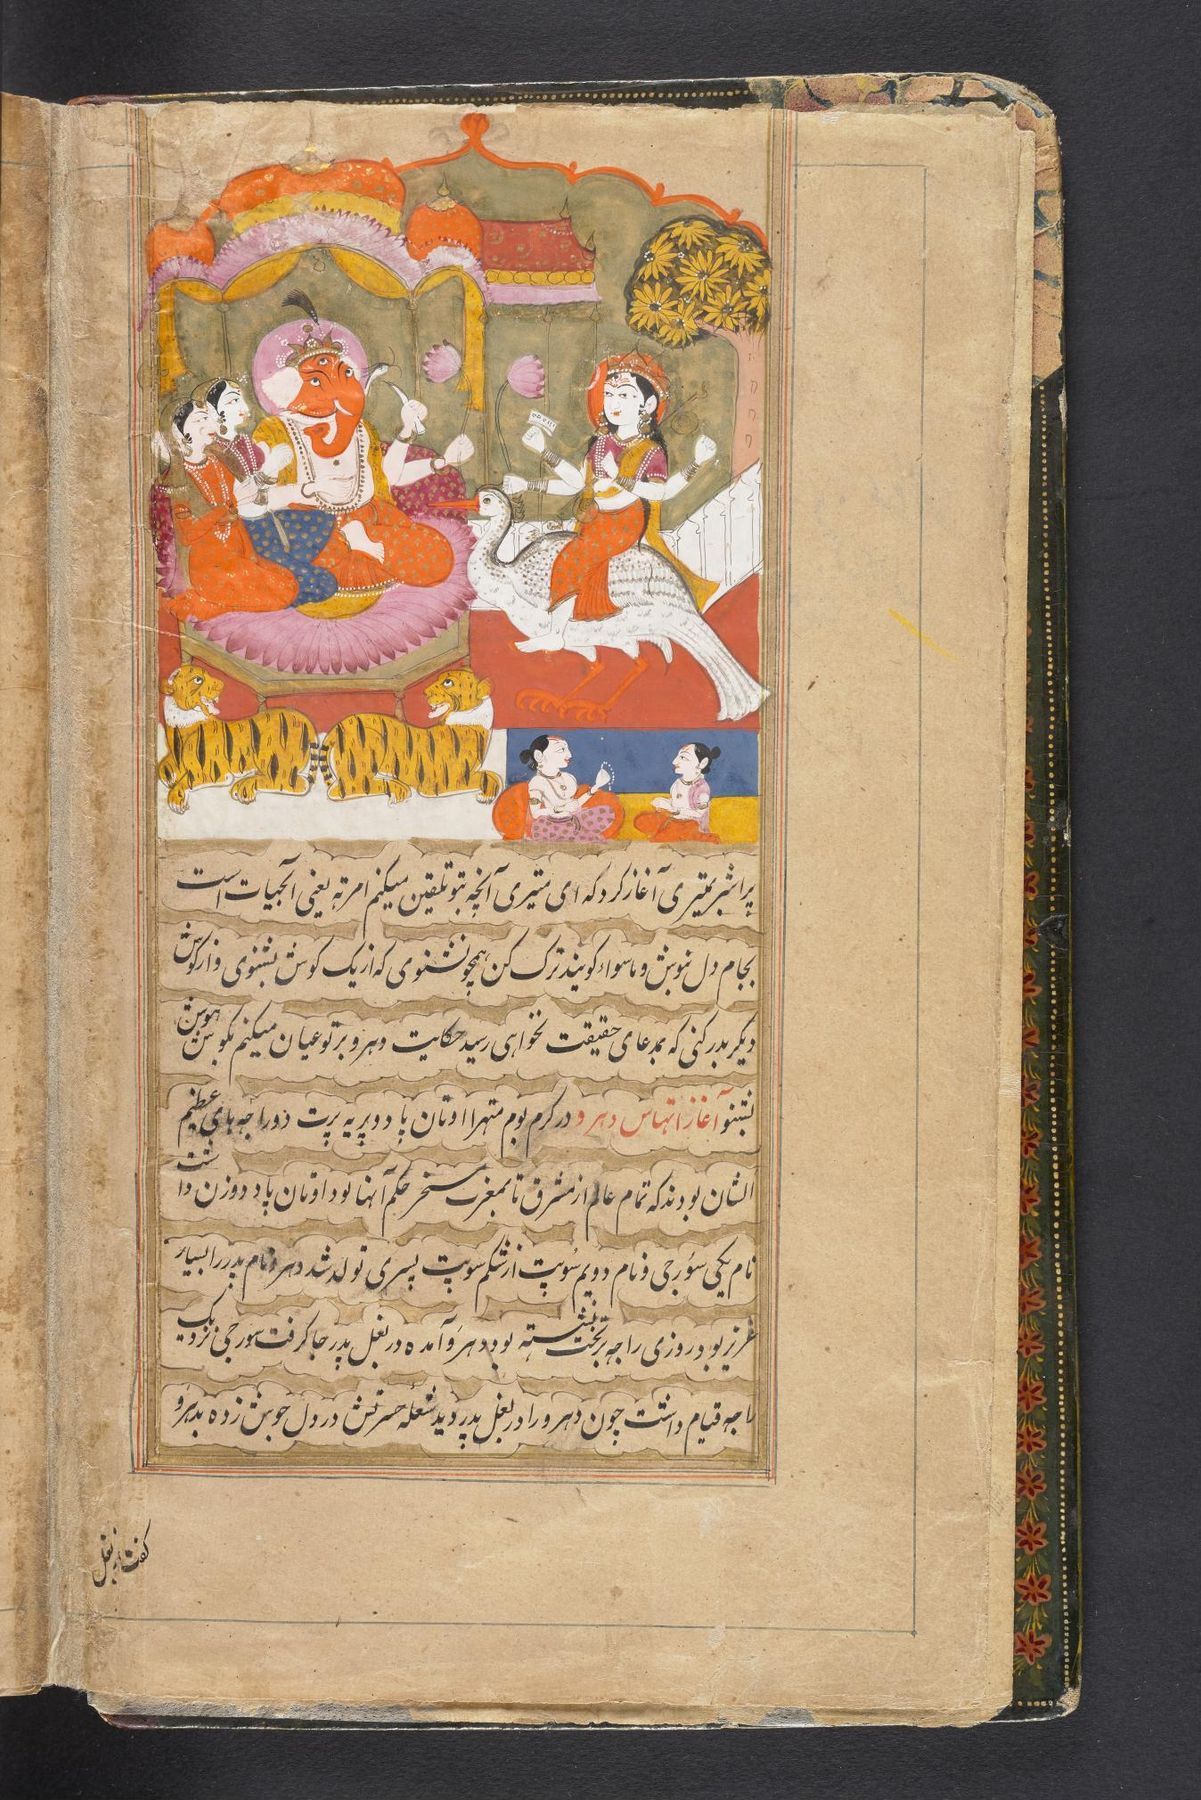 پراشر بمتیری آغاز کرد که ای متیری آنچه بتو تلقین میکنم امرته یعنی آبحیات است
بجام دل بنوش و ماسواء کویند ترک کن همچو نشنوی که از یک کوش بشنوی و از کوش
دیکر بدر کنی که بمدعای حقیقت نخواهی رسید حکایت دهرو بر تو عیان میکنم بکوش هوش
بشنو آغاز اتهاس دهرو در کرم بوم متهرا اوتان پاد و پریه برت دو راجه های عظیم
الشان بودند که تمام عالم از مشرق تا بمغرب مسخر حکم آنها بود اوتان پاد دو زن داشت
نام یکی سورجی و نام دویم سوپت از شکم سوپت پسری تولد شد دهرو نام پدر را بسیار
عزیز بود روزی راجه بر تخت نشسته بود دهرو آمده در بغل پدر جا کرفت سورجی نزدیک
راجه قیام داشت چون دهرو را در بغل پدر دید شعله حسرتش در دل جوش زده بدهرو
کفت از بغل